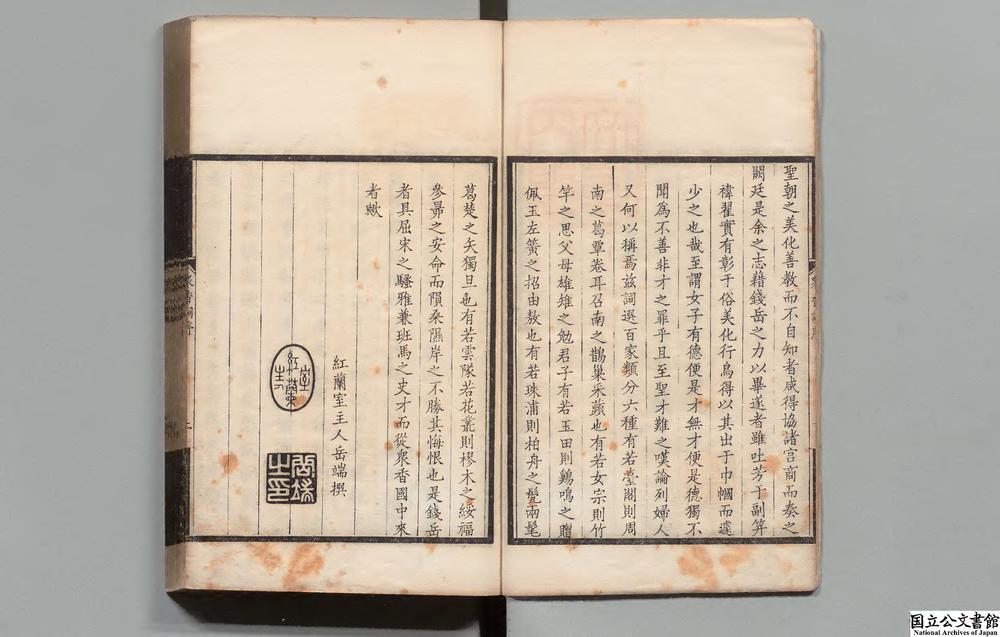 聖朝之美化善教而不自知者咸得協諸宫商而奏之
闕廷是余之志藉錢岳之力以畢遂者雖吐芳于副笄
褘翟實有彰于俗美化行烏得以其出于巾幗而遽
少之也哉至謂女子有德便是才無才便是德獨不
聞爲不善非才之罪乎且至聖才難之嘆論列婦人
又何以稱焉兹詞選百家類分六種有若臺閣則周
南之葛覃卷耳召南之鵲巢采蘋也有若女宗則竹
竿之思父母雄雉之勉君子有若玉田則鷄鳴之贈
佩玉左簧之招由敖也有若珠浦則柏舟之髧兩髦
葛楚之矢獨旦也有若雲隊若花叢則樛木之綏福
參昴之安命而隕桑隰岸之不勝其悔恨也是錢岳
者具屈宋之騷雅兼班馬之史才而從衆香國中來
者歟
紅蘭室主人岳端撰
紅蘭室主
岳端之印
国立公文書館
National Archives of Japan